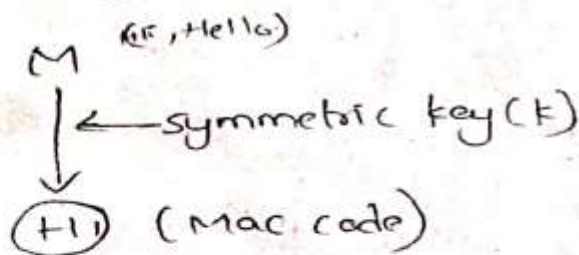 M (ex, Hello)
← symmetric key (k)
H1 (Mac code)